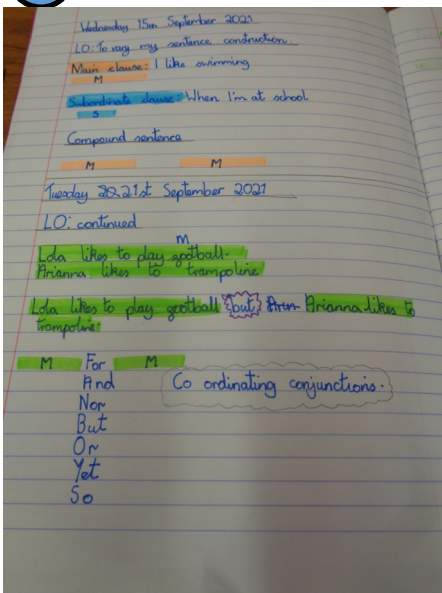 Wednesday 15th September 2021
LO: To vary my sentence construction.
Main clause: I like swimming
M
Subordinate clause: When I'm at school
S
Compound sentence
M M
Tuesday 21st September 2021
LO: continued
M
Lola likes to play football.
Arianna likes to trampoline.
Lola likes to play football but Arianna likes to
trampoline.
M For M
And Co ordinating conjunctions.
Nor
But
Or
Yet
So